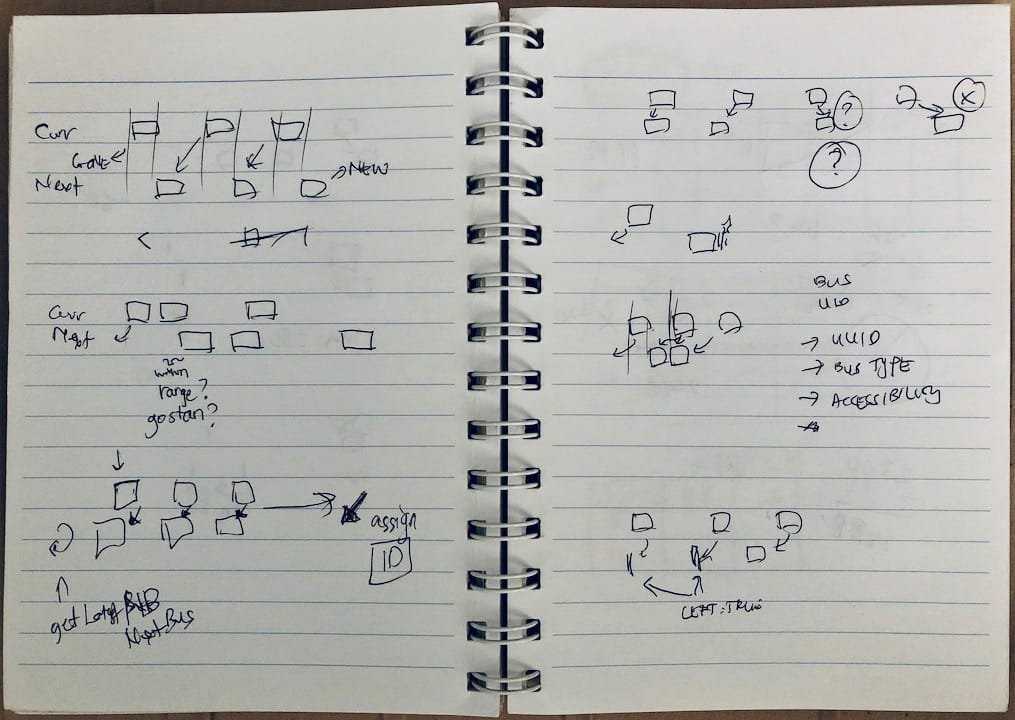 Curr
GONE
Next
NEW
Curr
Next
within
range?
gostan?
assign
ID
get
Next Bus
?
X
?
BUS
UID
→ UUID
→ BUS TYPE
→ ACCESSIBILITY
LEFT: TRUE